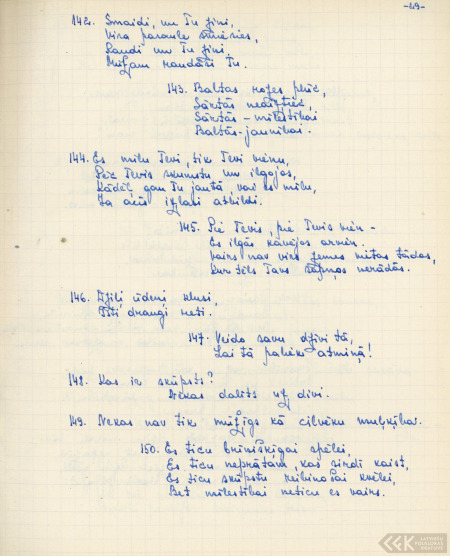 -29-
142. Smaidi, un Tu zini,
Vīra pasaule smiesies,
Raudi un Tu zini
Mūžam raudāsi Tu.
143. Baltas rozes plūc,
Sārtās neaiztiec,
Sārtās - mīlestībai
Baltās - jaunībai.
144. Es mīlu Tevi, tik Tevi vienu,
Pēc Tevis skumstu un ilgojos,
Kādēļ gan Tu jautā, vai es mīlu,
Ja acīs izlasi atbildi.
145. Pie Tevis, pie Tevis vien -
Es ilgās kavējos arvien.
Vairs nav virs zemes vietas tādas,
Kur tēls Tavs sapņos nerādās.
146. Dziļi ūdeņi klusi,
Īsti draugi reti.
147. Veido savu dzīvi tā,
Lai tā paliek atmiņā!
148. Kas ir skūpsts?
Nekas dalīts uz divi.
149. Nekas nav tik mūžīgs kā cilvēku muļķība.
150. Es ticu brīnišķīgai spēlei,
Es ticu neprātam, kas sirdī kaist,
Es ticu skūpstu reibinošai kvēlei,
Bet mīlestībai neticu es vairs.
LATVIEŠU
FOLKLORAS
KRĀTUVE